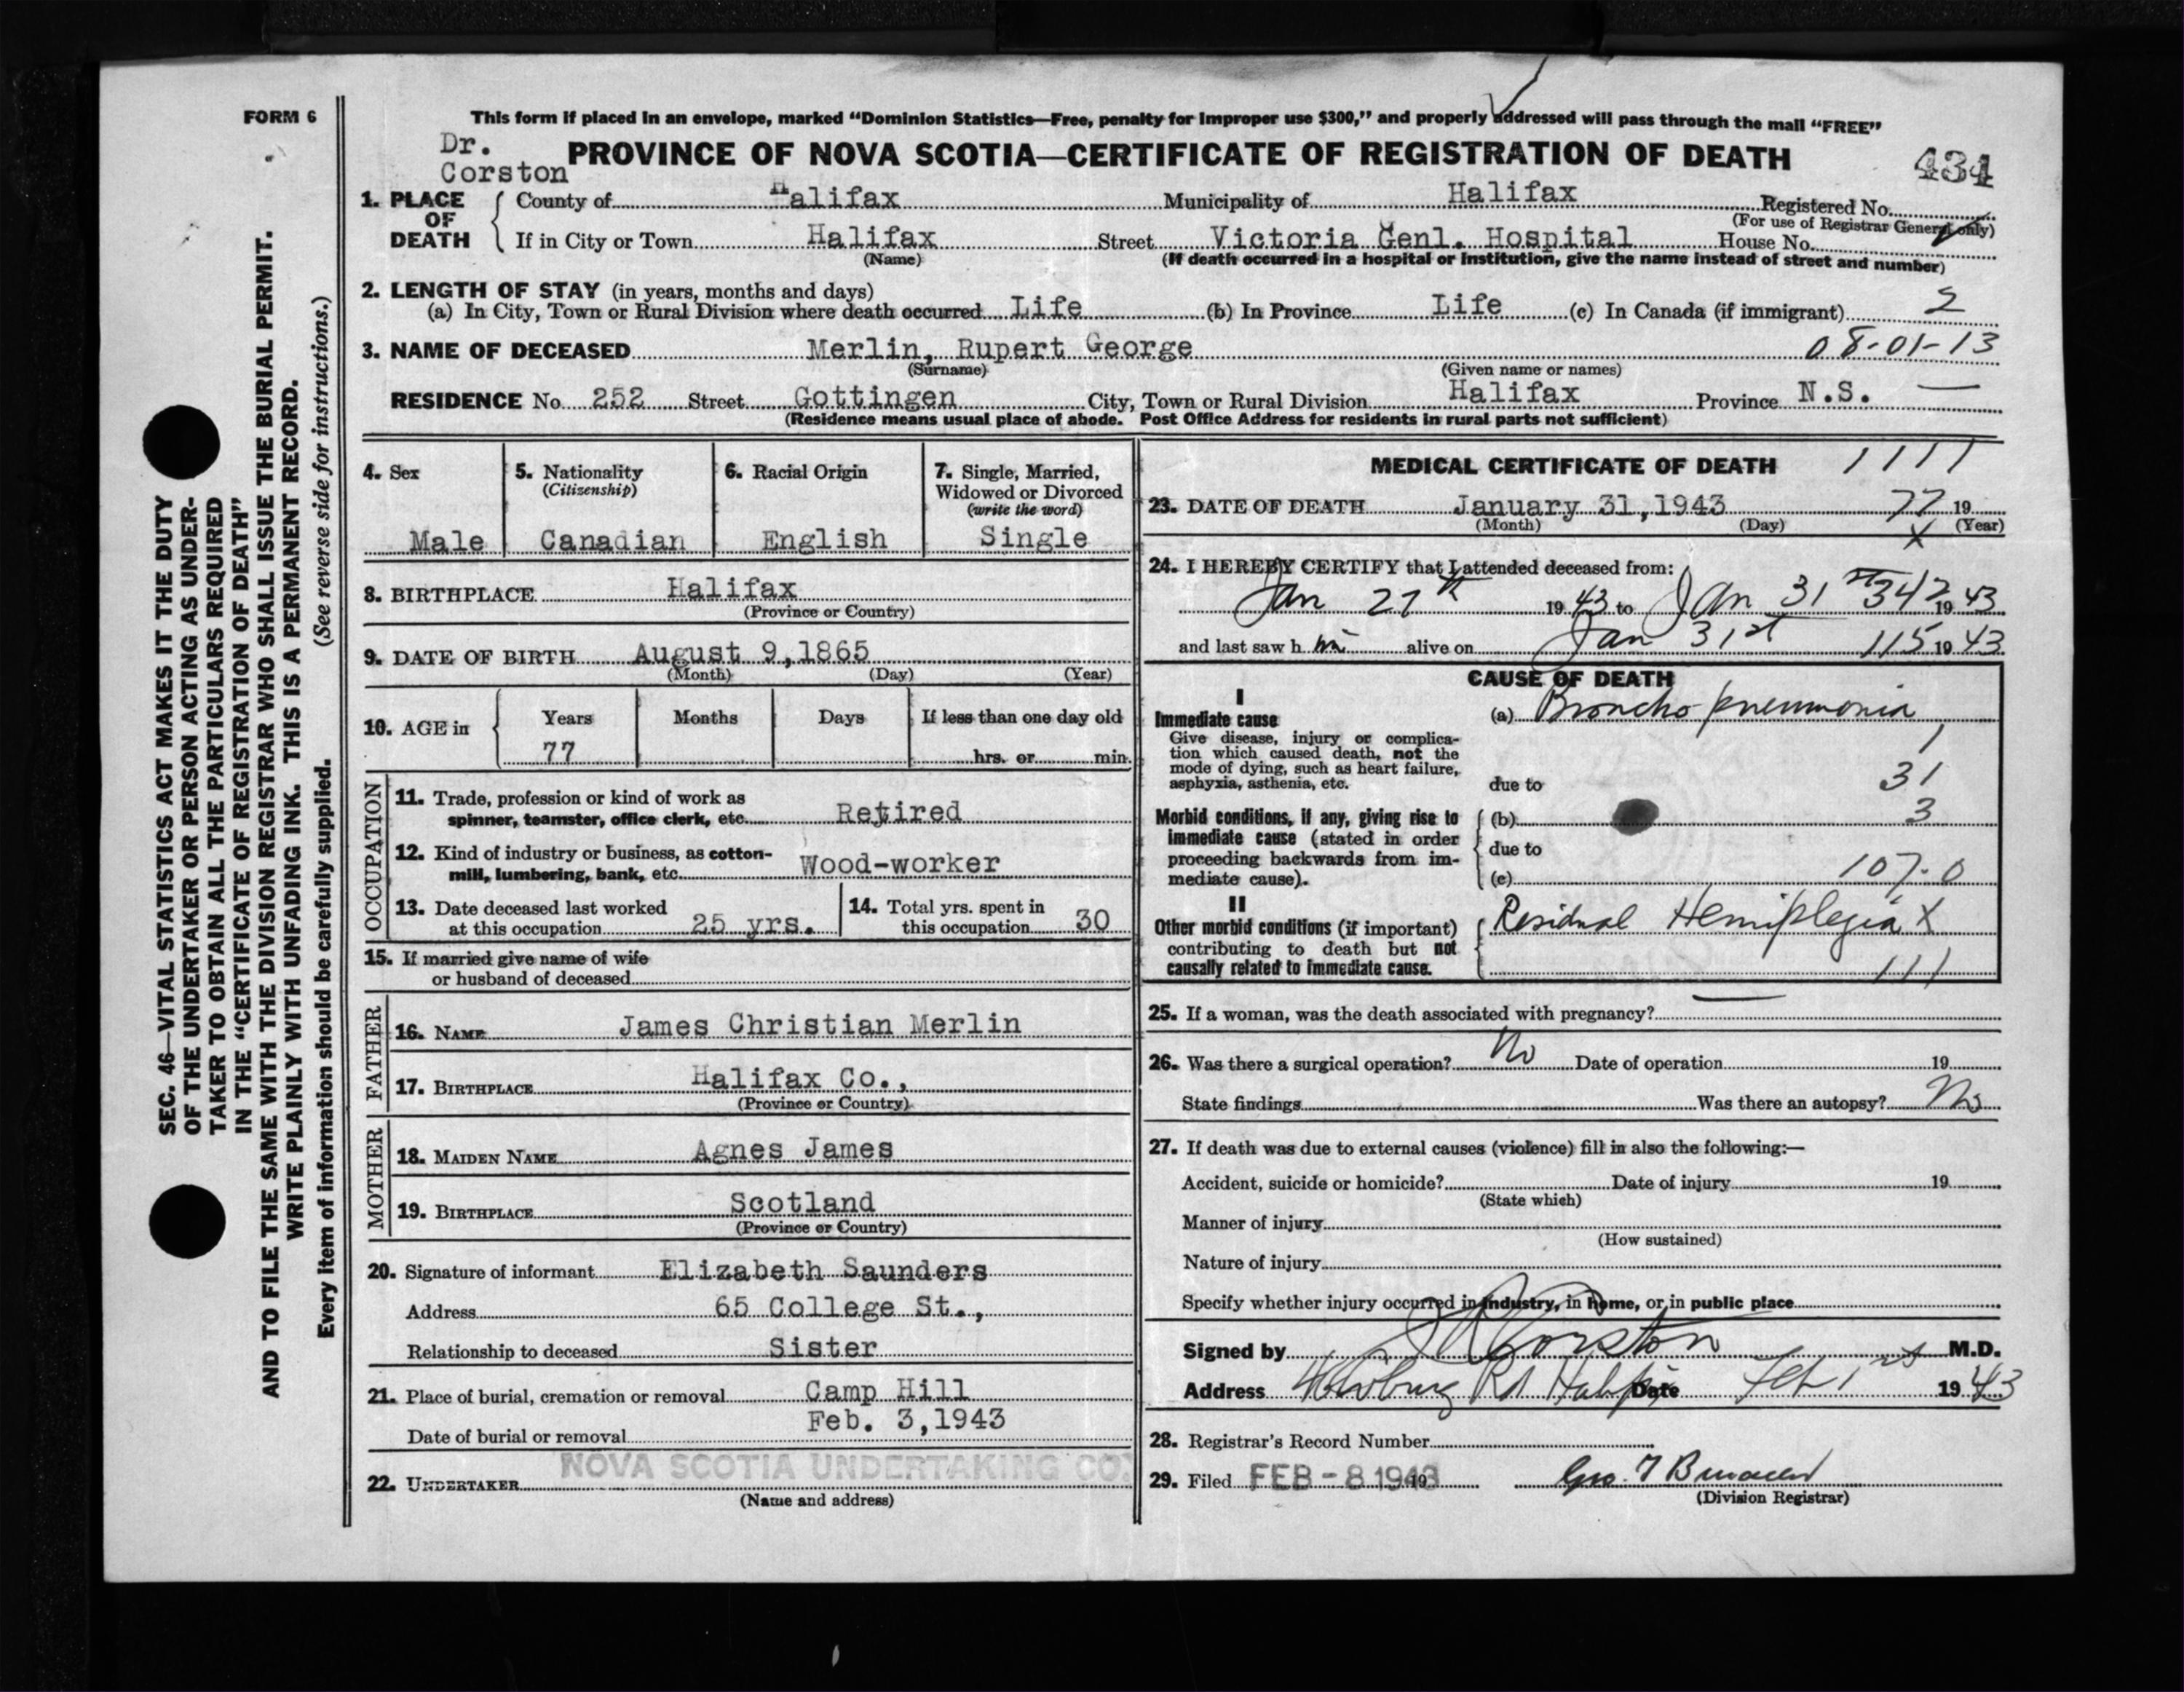 FORM 6
This form if placed in an envelope, marked "Dominion Statistics—Free, penalty for improper use $300," and properly addressed will pass through the mail "FREE"
Dr.
Corston
PROVINCE OF NOVA SCOTIA—CERTIFICATE OF REGISTRATION OF DEATH
434
1. PLACE OF DEATH
County of Halifax Municipality of Halifax Registered No.
(For use of Registrar General only)
If in City or Town Halifax Street Victoria Genl. Hospital House No.
(Name) (If death occurred in a hospital or institution, give the name instead of street and number)
2. LENGTH OF STAY (in years, months and days)
(a) In City, Town or Rural Division where death occurred Life (b) In Province Life (c) In Canada (if immigrant) 2
3. NAME OF DECEASED Merlin, Rupert George 08-01-13
(Surname) (Given name or names)
RESIDENCE No. 252 Street Gottingen City, Town or Rural Division Halifax Province N.S. —
(Residence means usual place of abode. Post Office Address for residents in rural parts not sufficient)
4. Sex
Male
5. Nationality
(Citizenship)
Canadian
6. Racial Origin
English
7. Single, Married,
Widowed or Divorced
(write the word)
Single
8. BIRTHPLACE Halifax
(Province or Country)
9. DATE OF BIRTH August 9, 1865
(Month) (Day) (Year)
10. AGE in Years Months Days If less than one day old
77 hrs. or min.
OCCUPATION
11. Trade, profession or kind of work as
spinner, teamster, office clerk, etc. Retired
12. Kind of industry or business, as cotton-
mill, lumbering, bank, etc. Wood-worker
13. Date deceased last worked
at this occupation 25 yrs.
14. Total yrs. spent in
this occupation 30
15. If married give name of wife
or husband of deceased
FATHER
16. NAME James Christian Merlin
17. BIRTHPLACE Halifax Co.,
(Province or Country)
MOTHER
18. MAIDEN NAME Agnes James
19. BIRTHPLACE Scotland
(Province or Country)
20. Signature of informant Elizabeth Saunders
Address 65 College St.,
Relationship to deceased Sister
21. Place of burial, cremation or removal Camp Hill
Date of burial or removal Feb. 3, 1943
22. UNDERTAKER NOVA SCOTIA UNDERTAKING CO.
(Name and address)
MEDICAL CERTIFICATE OF DEATH 1111
23. DATE OF DEATH January 31, 1943 77 19
(Month) (Day) (Year)
X
24. I HEREBY CERTIFY that I attended deceased from:
Jan 27th 1943 to Jan 31st 342 1943
and last saw him alive on Jan 31st 115 1943
CAUSE OF DEATH
I
Immediate cause
Give disease, injury or complica-
tion which caused death, not the
mode of dying, such as heart failure,
asphyxia, asthenia, etc.
(a) Broncho pneumonia
1
due to 31
Morbid conditions, if any, giving rise to
immediate cause (stated in order
proceeding backwards from im-
mediate cause).
(b) 3
due to
(c) 107-0
II
Other morbid conditions (if important)
contributing to death but not
causally related to immediate cause.
Residual Hemiplegia X
111
25. If a woman, was the death associated with pregnancy? —
26. Was there a surgical operation? No Date of operation 19
State findings Was there an autopsy? No
27. If death was due to external causes (violence) fill in also the following:—
Accident, suicide or homicide? Date of injury 19
(State which)
Manner of injury
(How sustained)
Nature of injury
Specify whether injury occurred in industry, in home, or in public place
Signed by Corston M.D.
Address Rd Date Feb 1st 1943
28. Registrar's Record Number
29. Filed FEB - 8 1943 19
(Division Registrar)
SEC. 46—VITAL STATISTICS ACT MAKES IT THE DUTY
OF THE UNDERTAKER OR PERSON ACTING AS UNDER-
TAKER TO OBTAIN ALL THE PARTICULARS REQUIRED
IN THE "CERTIFICATE OF REGISTRATION OF DEATH"
AND TO FILE THE SAME WITH THE DIVISION REGISTRAR WHO SHALL ISSUE THE BURIAL PERMIT.
WRITE PLAINLY WITH UNFADING INK. THIS IS A PERMANENT RECORD.
Every item of information should be carefully supplied. (See reverse side for instructions.)